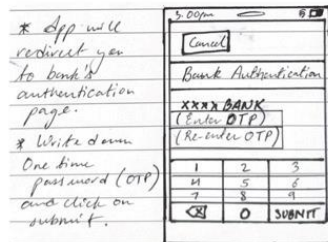 * App will
redirect you
to bank's
authentication
page.
* Write down
One time
password (OTP)
and click on
submit.
3.00pm
Cancel
Bank Authentication
XXXX BANK
(Enter OTP)
(Re-enter OTP)
1 2 3
4 5 6
7 8 9
0 SUBMIT